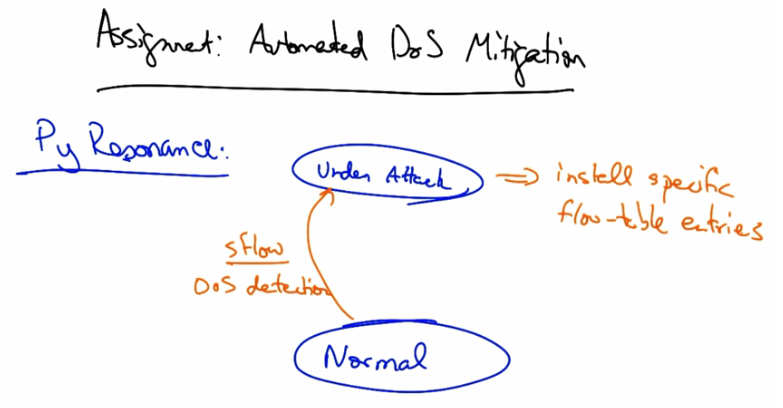 Assignment: Automated DoS Mitigation
Py Resonance:
Under Attack
⇒ install specific
flow-table entries
sflow
DoS detection
Normal